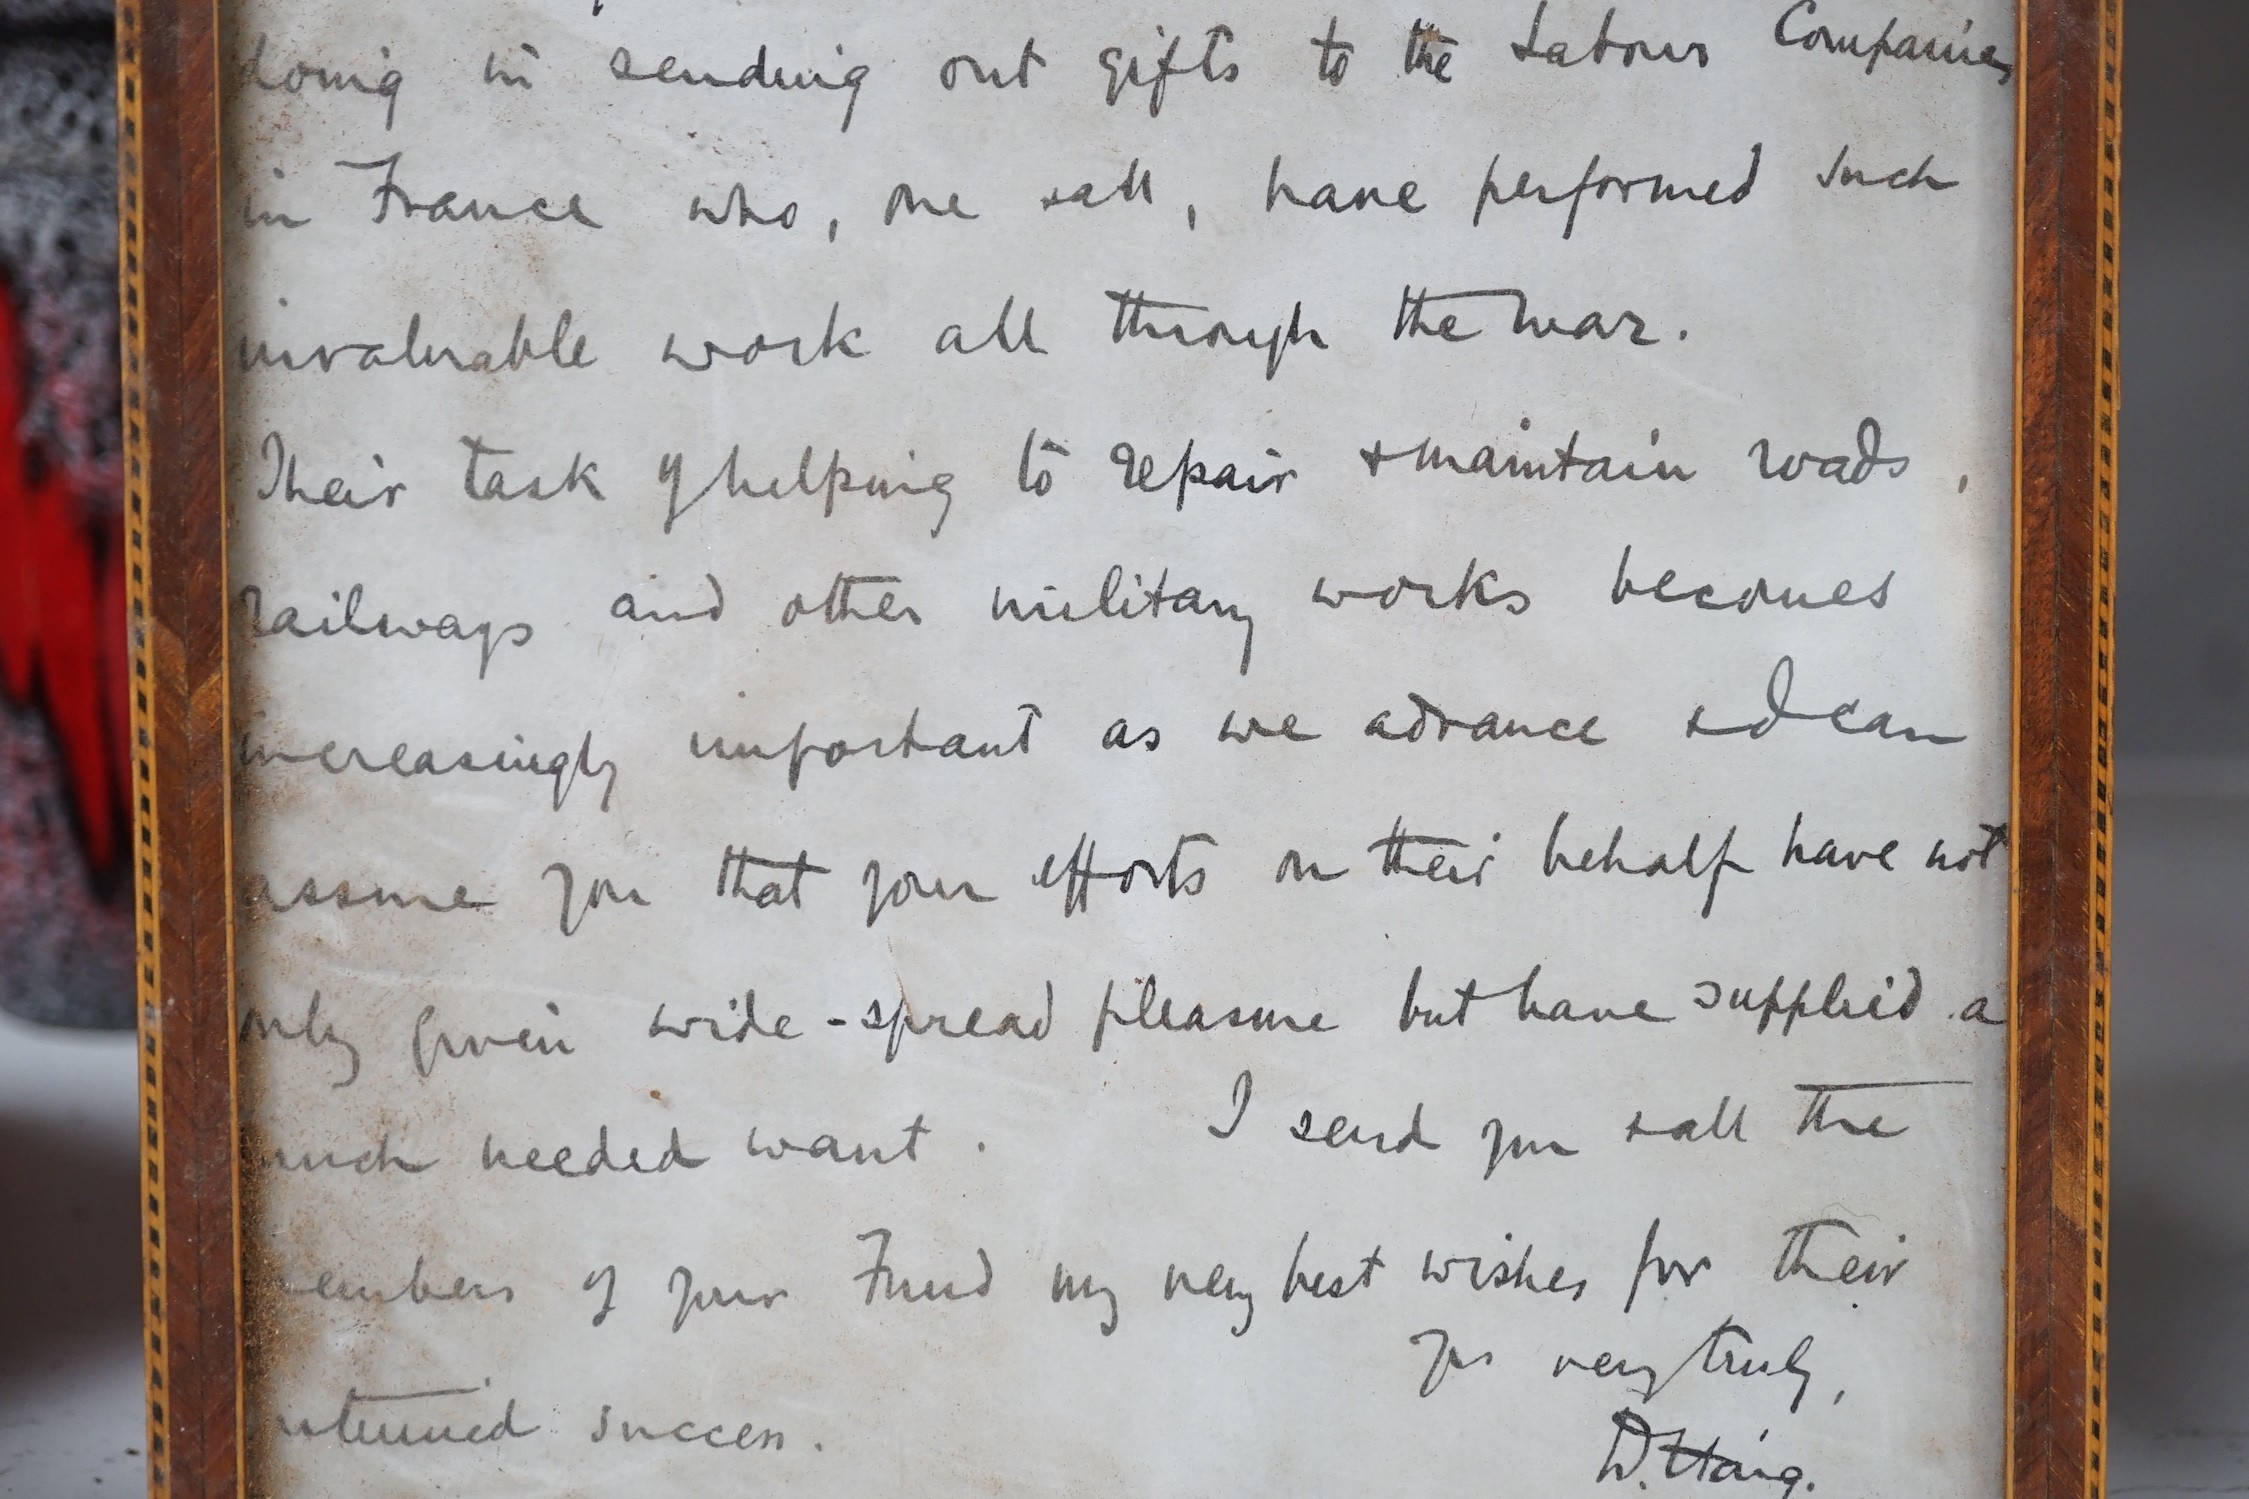 doing in sending out gifts to the Labour Companies
in France who, one & all, have performed such
invaluable work all through the War.
Their task of helping to repair & maintain roads,
railways and other military works becomes
increasingly important as we advance & I can
assure you that your efforts on their behalf have not
only given wide-spread pleasure but have supplied a
much needed want. I send you & all the
members of your Fund my very best wishes for their
success.
Yrs very truly,
D. Haig.